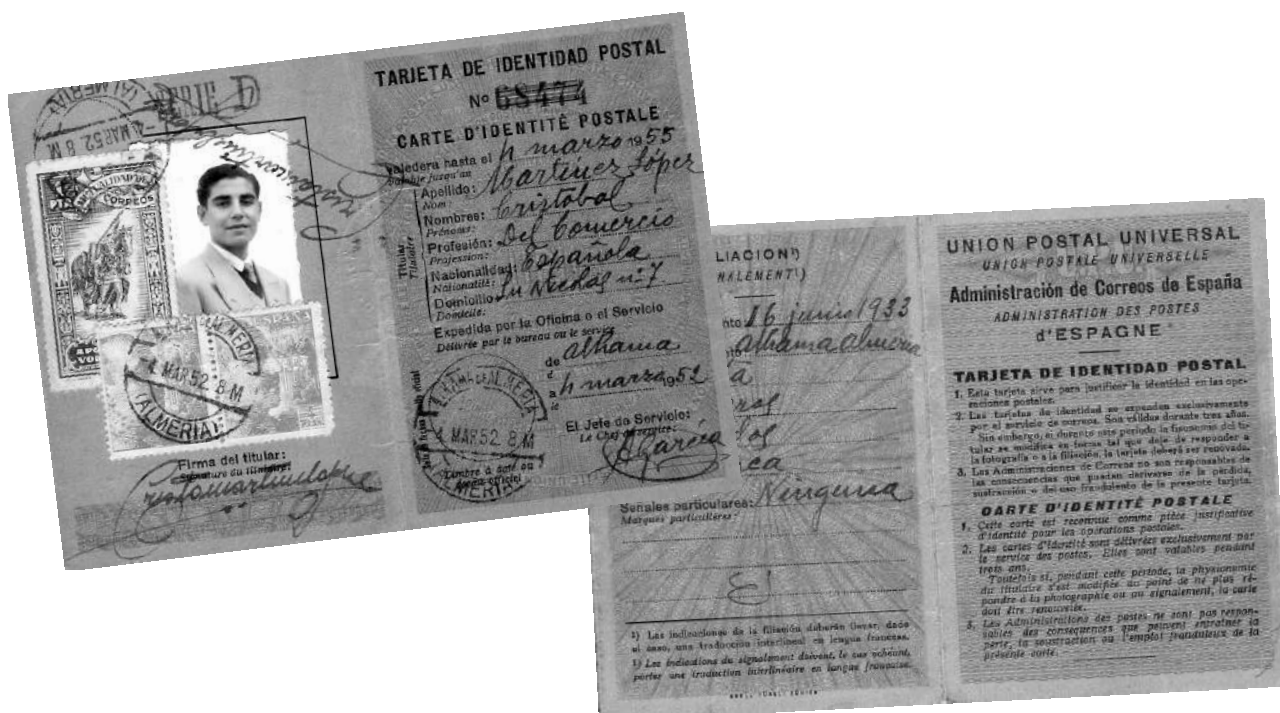 SERIE D
(ALMERIA)
4 MAR 52 8 M
CORREOS
ALHAMA DE ALMERIA
4 MAR 52 8 M
(ALMERIA)
Firma del titular:
Signature du titulaire:
TARJETA DE IDENTIDAD POSTAL
Nº 68474
CARTE D'IDENTITÉ POSTALE
Valedera hasta el 4 marzo 1955
Valable jusqu'au
Titular
Titulaire
Apellido: Martínez López
Nom:
Nombres: Cristóbal
Prénoms:
Profesión: Del Comercio
Profession:
Nacionalidad: Española
Nationalité:
Domicilio: Sn Nicolas nº 7
Domicile:
Expedida por la Oficina o el Servicio
Délivrée par le bureau ou le service
de Alhama
a 4 marzo 1952
le
El Jefe de Servicio:
Le Chef de service:
AGarcía
ALHAMA DE ALMERIA
4 MAR 52 8 M
Timbre à date ou
(ALMERIA)
LIACION¹)
NALEMENT¹)
nto 16 junio 1933
nto Alhama Almeria
Señales particulares: Ninguna
Marques particulières:
1) Las indicaciones de la filiación deberán llevar, dado
el caso, una traducción interlineal en lengua francesa.
1) Les indications du signalement doivent, le cas échéant,
porter une traduction interlinéaire en langue française.
UNION POSTAL UNIVERSAL
UNION POSTALE UNIVERSELLE
Administración de Correos de España
ADMINISTRATION DES POSTES
d'ESPAGNE
TARJETA DE IDENTIDAD POSTAL
1. Esta tarjeta sirve para justificar la identidad en las ope-
raciones postales.
2. Las tarjetas de identidad se expenden exclusivamente
por el servicio de correos. Son válidas durante tres años.
Sin embargo, si durante este período la fisonomía del ti-
tular se modifica en forma tal que deje de responder a
la fotografía o a la filiación, la tarjeta deberá ser renovada.
3. Las Administraciones de Correos no son responsables de
las consecuencias que puedan derivarse de la pérdida,
sustracción o del uso fraudulento de la presente tarjeta.
CARTE D'IDENTITÉ POSTALE
1. Cette carte est reconnue comme pièce justificative
d'identité pour les opérations postales.
2. Les cartes d'identité sont délivrées exclusivement par
le service des postes. Elles sont valables pendant
trois ans.
Toutefois si, pendant cette période, la physionomie
du titulaire s'est modifiée au point de ne plus ré-
pondre à la photographie ou au signalement, la carte
doit être renouvelée.
3. Les Administrations des postes ne sont pas respon-
sables des conséquences que peuvent entraîner la
perte, la soustraction ou l'emploi frauduleux de la
présente carte.